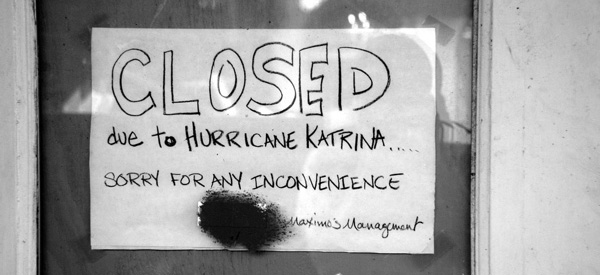 CLOSED
due to HURRICANE KATRINA.....
SORRY FOR ANY INCONVENIENCE
Maximo's Management